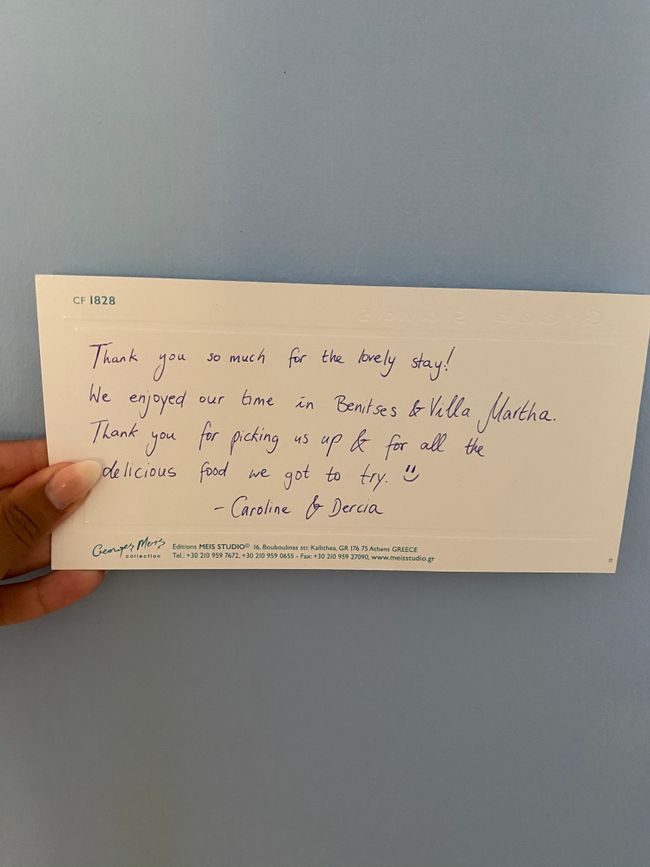 CF 1828
Thank you so much for the lovely stay!
We enjoyed our time in Benitses & Villa Martha.
Thank you for picking us up & for all the
delicious food we got to try. :)
- Caroline & Dercia
Georges Meis
collection
Editions MEIS STUDIO© 16, Bouboulinas str. Kallithea, GR 176 75 Athens GREECE
Tel.: +30 210 959 7672, +30 210 959 0655 - Fax: +30 210 959 27090, www.meisstudio.gr